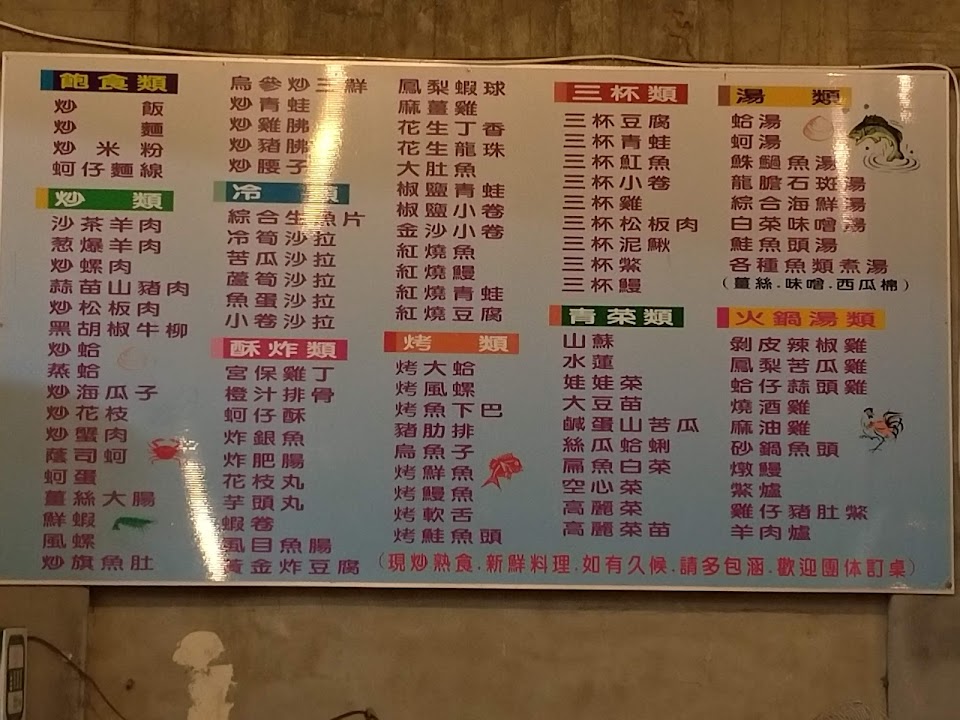 飽食類
炒飯
炒麵
炒米粉
蚵仔麵線
炒類
沙茶羊肉
葱爆羊肉
炒螺肉
蒜苗山豬肉
炒松板肉
黑胡椒牛柳
炒蛤
蒸蛤
炒海瓜子
炒花枝
炒蟹肉
蔭司蚵
蚵蛋
薑絲大腸
鮮蝦
風螺
炒旗魚肚
烏參炒三鮮
炒青蛙
炒雞胇
炒豬胇
炒腰子
冷類
綜合生魚片
冷筍沙拉
苦瓜沙拉
蘆筍沙拉
魚蛋沙拉
小卷沙拉
酥炸類
宮保雞丁
橙汁排骨
蚵仔酥
炸銀魚
炸肥腸
花枝丸
芋頭丸
蝦卷
虱目魚腸
黃金炸豆腐
鳳梨蝦球
麻薑雞
花生丁香
花生龍珠
大肚魚
椒鹽青蛙
椒鹽小卷
金沙小卷
紅燒魚
紅燒鰻
紅燒青蛙
紅燒豆腐
烤類
烤大蛤
烤風螺
烤魚下巴
豬肋排
烏魚子
烤鮮魚
烤鰻魚
烤軟舌
烤鮭魚頭
三杯類
三杯豆腐
三杯青蛙
三杯魟魚
三杯小卷
三杯雞
三杯松板肉
三杯泥鰍
三杯鱉
三杯鰻
青菜類
山蘇
水蓮
娃娃菜
大豆苗
鹹蛋山苦瓜
絲瓜蛤蜊
扁魚白菜
空心菜
高麗菜
高麗菜苗
湯類
蛤湯
蚵湯
鮢鍋魚湯
龍膽石斑湯
綜合海鮮湯
白菜味噌湯
鮭魚頭湯
各種魚類煮湯
(薑絲.味噌.西瓜棉)
火鍋湯類
剝皮辣椒雞
鳳梨苦瓜雞
蛤仔蒜頭雞
燒酒雞
麻油雞
砂鍋魚頭
燉鰻
鱉爐
雞仔豬肚鱉
羊肉爐
(現炒熟食.新鮮料理.如有久候.請多包涵.歡迎團体訂桌)